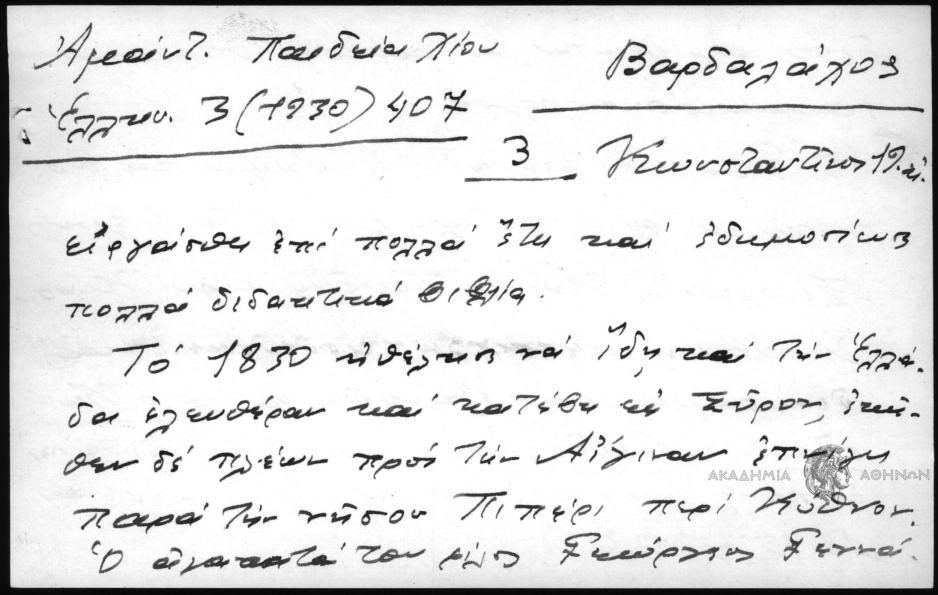 Ἀμάντ. Παιδεία Χίου
Ἑλλην. 3 (1930) 407
Βαρδαλάχος
3 Κωνσταντῖνος 19.αἰ.
εἰργάσθη ἐπί πολλά ἔτη καί ἐδημοσίευσε
πολλά διδακτικά βιβλία.
Τό 1830 ἠθέλησε νά ἴδῃ καί τήν Ἑλλά-
δα ἐλευθέραν καί κατέβη εἰς Σῦρον, ἐκεῖ-
θεν δέ πλέων πρός τήν Αἴγιναν ἐπνίγη
παρά τήν νῆσον Πιπέρι περί Κύθνον.
Ὁ φίλος Γεώργιος Γεννά-
ΑΚΑΔΗΜΙΑ ΑΘΗΝΩΝ